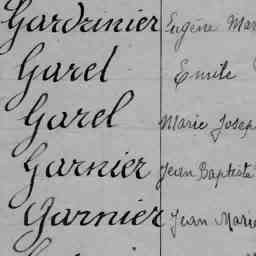 Gardrinier Eugène Mar
Garel Emile
Garel Marie Josep
Garnier Jean Baptiste
Garnier Jean Marie